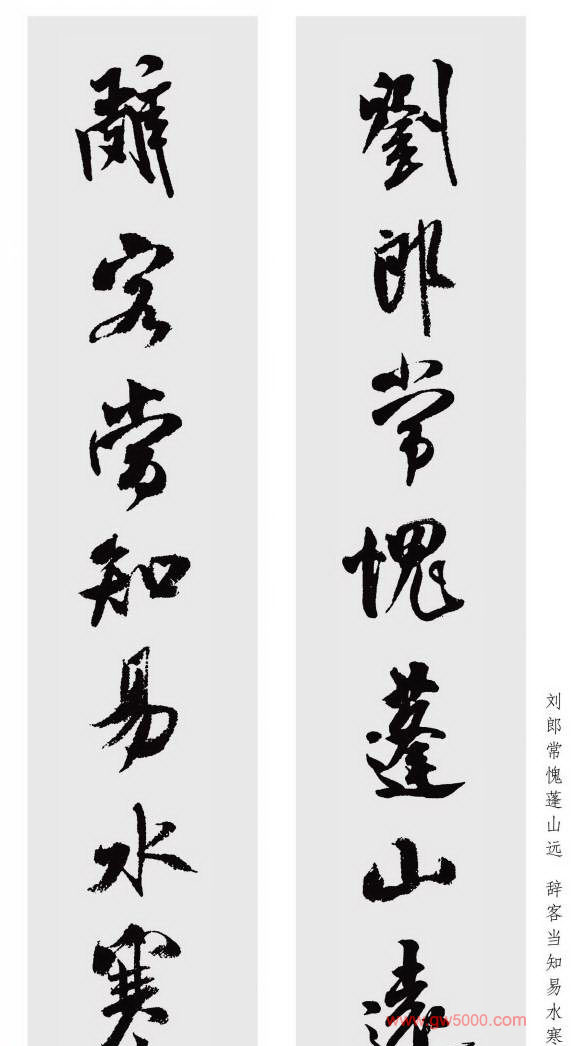 劉郎常愧蓬山遠
辭客當知易水寒
刘郎常愧蓬山远 辞客当知易水寒
www.gw5000.com